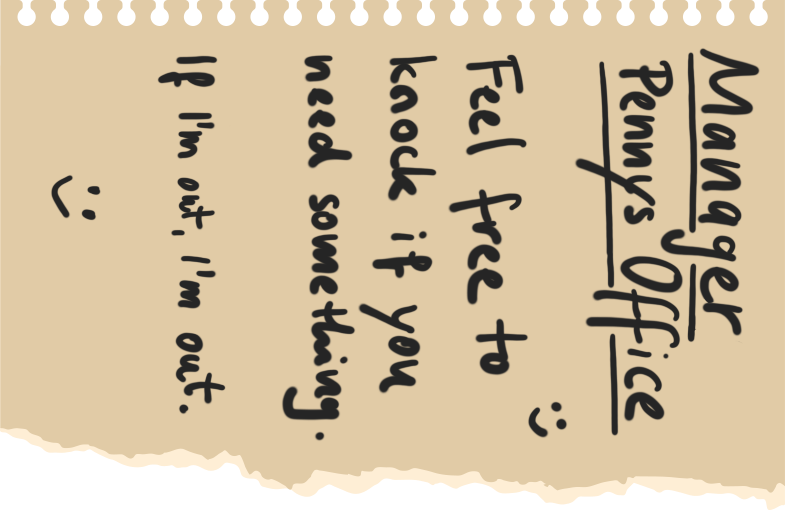 Manager
Pennys Office
Feel free to
knock if you
need something.
If I'm out, I'm out.